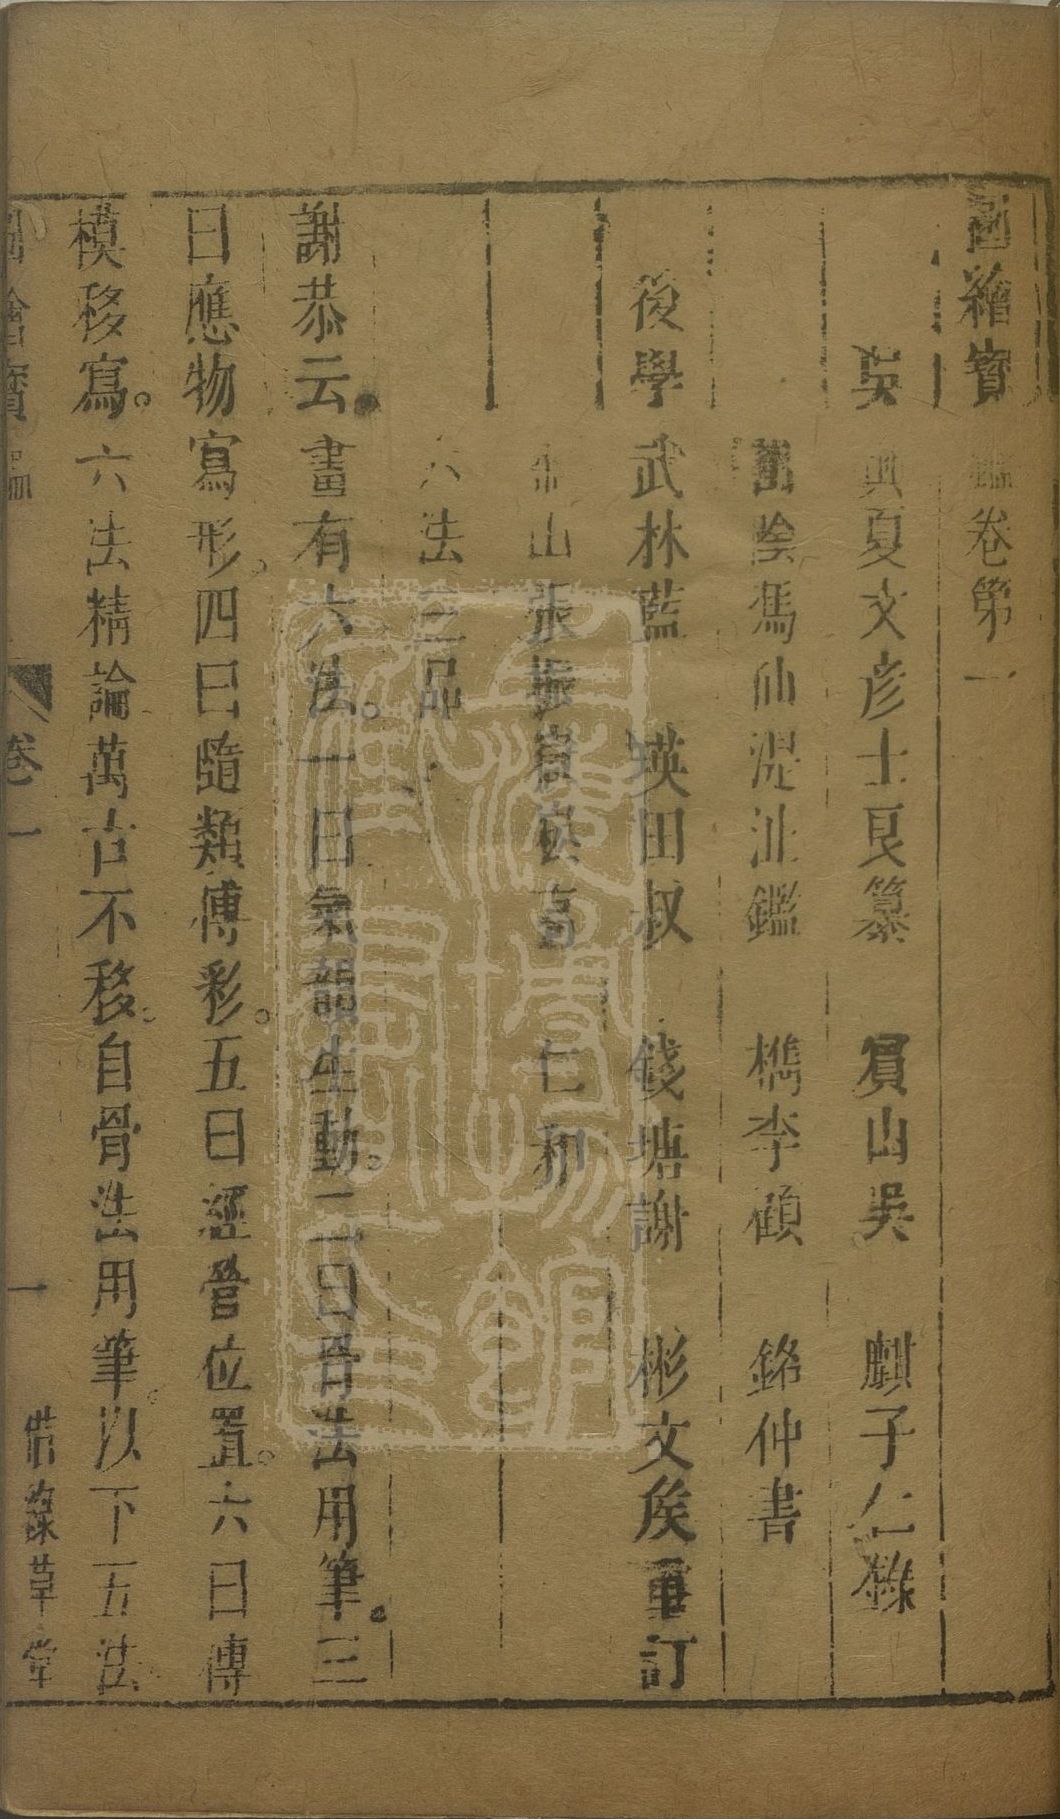 圖繪寶鑑卷第一
吳興夏文彥士良纂　眉山吳　麒子仁錄
山陰馮仙湜沚鑑　檇李顧　銘仲書
後學武林藍　瑛田叔　錢塘謝　彬文侯重訂
山張振嶽崧高　仁和
六法三品
謝恭云畫有六法。一曰氣韻生動。二曰骨法用筆。三
曰應物寫形。四曰隨類傅彩。五曰經營位置。六曰傳
模移寫。六法精論萬古不移。自骨法用筆。以下五法
圖繪寶鑑　卷一　一　借綠草堂